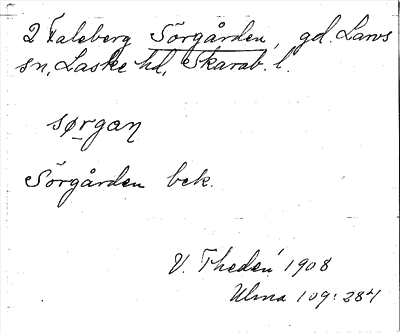 2 Faleberg Sörgården, gd. Larvs
sn, Laske hd, Skarab. l.
sørgan
Sörgården bek.
V. Theden 1908
Ulma 109:284